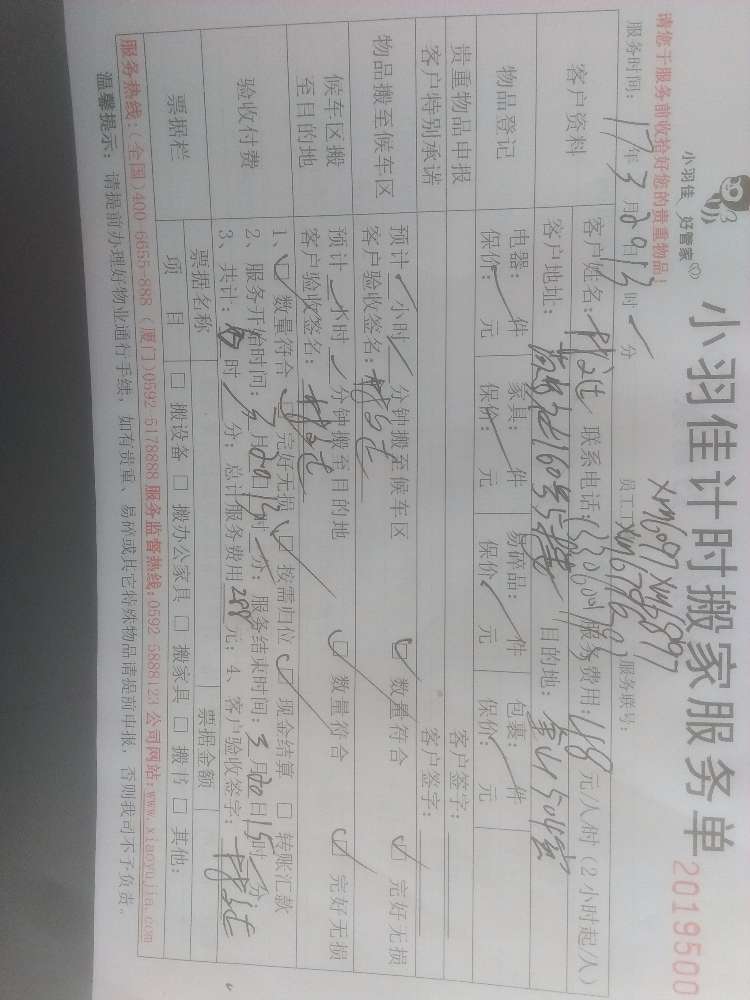 小羽佳 好管家
小羽佳计时搬家服务单
2019500
请您于服务前收拾好您的贵重物品！
服务时间：17年3月20日13时 分 员工工 服务联号：
客户资料 客户姓名： 联系电话： 服务费用：48元/人/时（2小时起/人）
客户地址： 目的地：
物品登记 电器： 件 家具： 件 易碎品： 件 包裹： 件
保价： 元 保价： 元 保价： 元 保价： 元
贵重物品申报 客户签字：
客户特别承诺 客户签字：
物品搬至候车区 预计 小时 分钟搬至候车区 数量符合 完好无损
客户验收签名：
候车区搬至目的地 预计 小时 分钟搬至目的地 数量符合 完好无损
客户验收签名：
验收付费 1、 数量符合 完好无损 按需归位 现金结算 □ 转账汇款
2、服务开始时间：3月20日13时 分；服务结束时间：3月20日15时 分；
3、共计： 时 分；总计服务费用288元；4、客户验收签字：
票据栏 票据名称 票据金额
项 目 □ 搬设备 □ 搬办公家具 □ 搬家具 □ 搬书 □ 其他：
服务热线：(全国)400-6655-888 (厦门)0592 5178888 服务监督热线：0592 5888123 公司网站：www.xiaoyujia.com
温馨提示：请提前办理好物业通行手续，如有贵重、易碎或其它特殊物品请提前申报，否则我司不予负责。